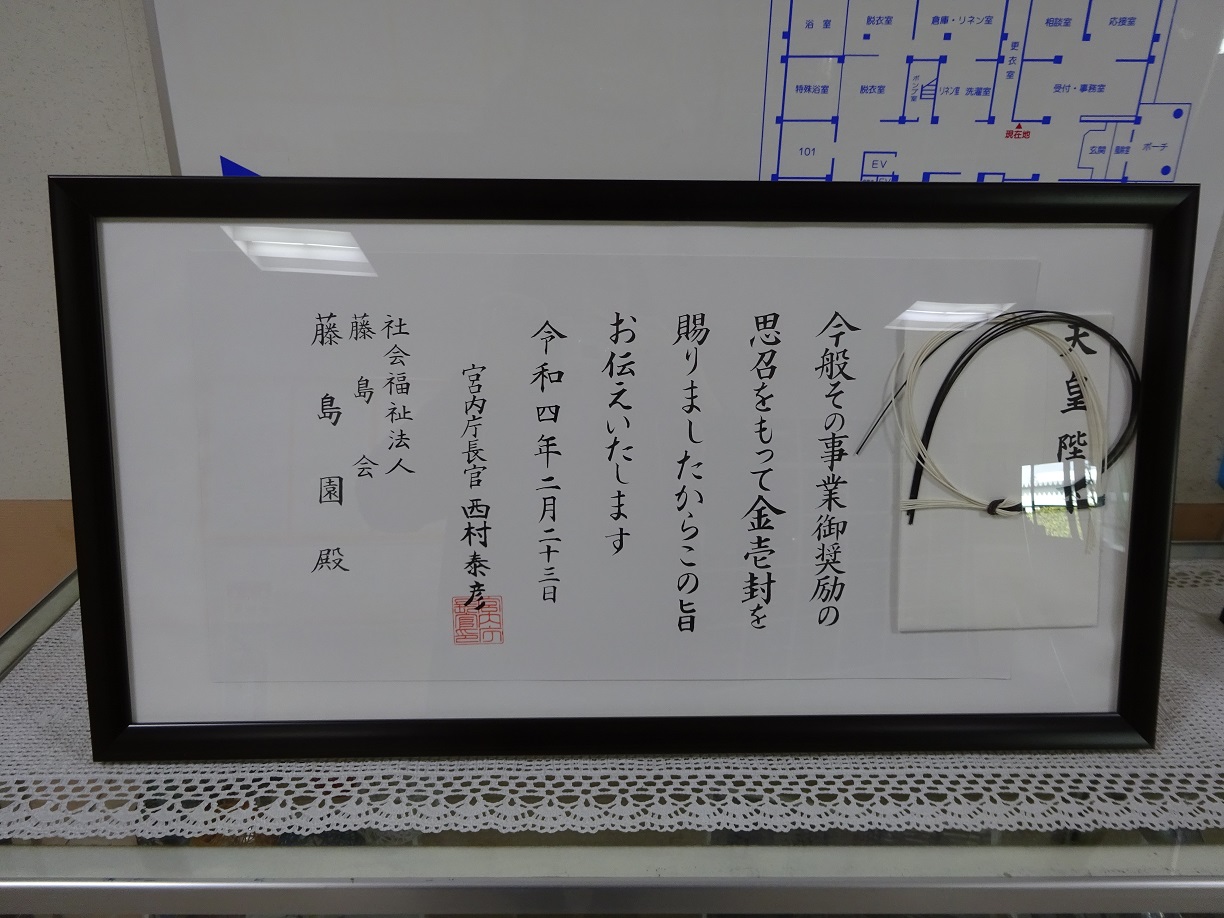 浴室
脱衣室
倉庫・リネン室
更衣室
相談室
応接室
特殊浴室
脱衣室
ポンプ室
リネン室
洗濯室
受付・事務室
現在地
101
EV
玄関
ポーチ
天皇陛下
今般その事業御奨励の
思召をもって金壱封を
賜りましたからこの旨
お伝えいたします
令和四年二月二十三日
宮内庁長官 西村泰彦
社会福祉法人
藤島会
藤島園殿